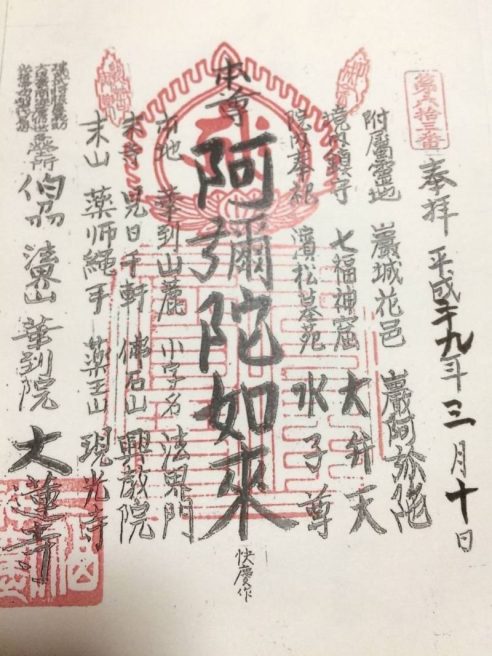 第六拾三番
奉拝 平成二十九年三月十日
附屬靈地 巖城花邑 巖阿弥陀
境内鎮守 七福神窟 大弁天
院内奉祀 濱松墓苑 水子尊
本尊 阿彌陀如來 快慶作
本地 華到山麓 小字名 法界門
末寺 見日千軒 佛石山 興教院
末山 薬師縄手 薬王山 現光寺
伯州 法界山 華到院 大蓮寺